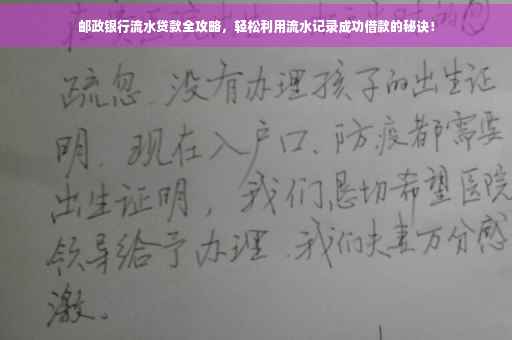 邮政银行流水贷款全攻略，轻松利用流水记录成功借款的秘诀！
疏忽、没有办理孩子的出生证
明、现在入户口、防疫都需要
出生证明，我们恳切希望医院
领导给予办理、我们夫妻万分感
激。